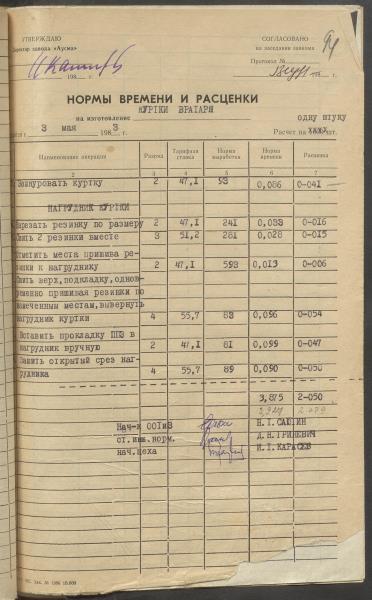 УТВЕРЖДАЮ
СОГЛАСОВАНО
завода «Аусма»
на заседании завкома
Протокол №
94
198 г.
НОРМЫ ВРЕМЕНИ И РАСЦЕНКИ
КУРТКИ ВРАТАРЯ
на изготовление
одну штуку
3 мая 198 3
Расчет на
Наименование операции
Разряд
Тарифная ставка
Норма выработки
Норма времени
Расценка
2 3 4 5 6 7
Зашнуровать куртку 2 47,1 93 0,086 0-041
НАГРУДНИК КУРТКИ
Нарезать резинку по размеру 2 47,1 241 0,033 0-016
Сшить 2 резинки вместе 3 51,2 281 0,028 0-015
Отметить места пришива ре-
зинки к нагруднику 2 47,1 593 0,013 0-006
Сшить верх,подкладку,однов-
ременно пришивая резинки по
намеченным местам,вывернуть
нагрудник куртки 4 55,7 83 0,096 0-054
Вставить прокладку ППЭ в
нагрудник вручную 2 47,1 81 0,099 0-047
Зашить открытый срез наг-
рудника 4 55,7 89 0,090 0-050
3,875 2-050
Нач-к ООТиЗ Н.I.САШИН
ст.инж.норм. Д.Н.ГРИНЕВИЧ
нач.цеха И.I.КАРАСЕВ